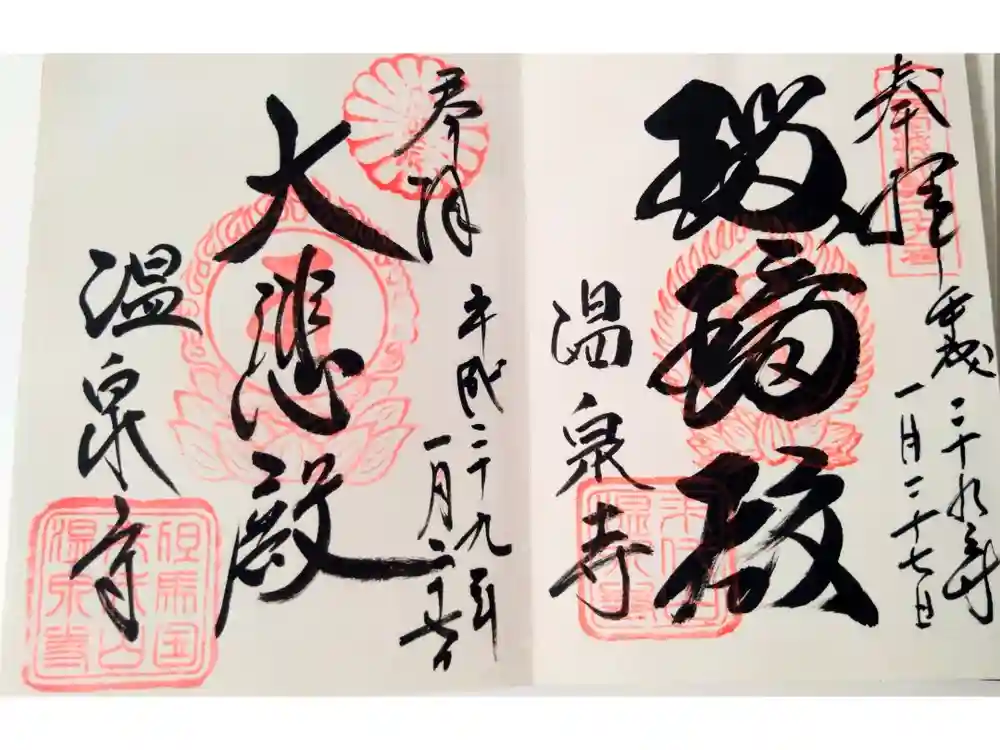 奉拝
平成二十九年
一月二十七日
瑠璃殿
温泉寺
奉拝
平成二十九年
一月二十七日
大悲殿
温泉寺
但馬国
温泉寺